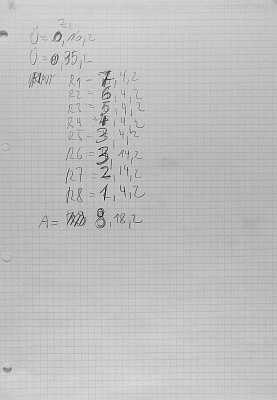 Z,
Ü = 0, 16, 2
Ü = 0, 35, 2
R1 - 7, 4, 2
R2 = 6, 4, 2
R3 = 5, 4, 2
R4 = 4, 4, 2
R5 = 3, 4, 2
R6 = 3, 14, 2
R7 = 2, 14, 2
R8 = 1, 4, 2
A = 8, 18, 2